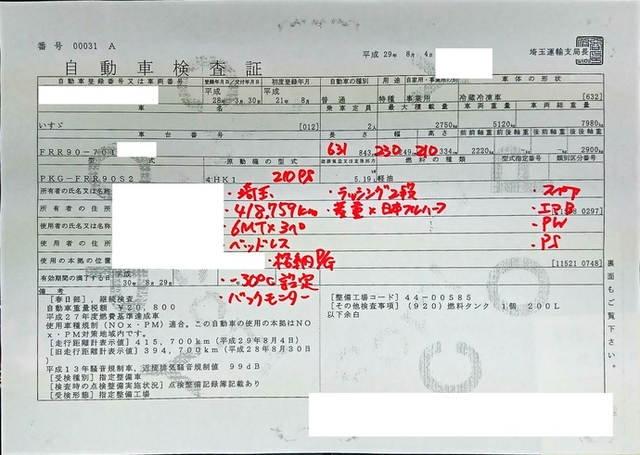 番号 00031 A
平成 29年 8月 4日
埼玉運輸支局長
自動車検査証
自動車登録番号又は車両番号 登録年月日/交付年月日 初度登録年月 自動車の種別 用途 自家用・事業用の別 車体の形状
平成 28年 3月30日 平成 21年 8月 普通 特種 事業用 冷蔵冷凍車 [632]
車名 乗車定員 最大積載量 車両重量 車両総重量
いすゞ [012] 2人 2750kg 5120kg 7980kg
車台番号 長さ 幅 高さ 前前軸重 前後軸重 後前軸重 後後軸重
FRR90-701 631 230 210 2220kg -kg -kg 2900kg
型式 原動機の型式 燃料の種類 型式指定番号 類別区分番号
PKG-FRR90S2 4HK1 210PS 5.19 軽油
所有者の氏名又は名称 ・埼玉 ・ラッシング2段 ・スペア
所有者の住所 ・418,759km ・菱重×日本フルハーフ ・エアB
使用者の氏名又は名称 ・6MT× ・PW
使用者の住所 ・ベッドレス ・PS
使用の本拠の位置 ・格納P/G [11521 0748]
有効期間の満了する日 平成 30年 8月29日 ・-30℃設定
備考 ・バックモニター
[春日部], 継続検査 [整備工場コード] 44-00585
自動車重量税額 ¥20,800 [その他検査事項] (920) 燃料タンク 1個 200L
平成27年度燃費基準達成車 以下余白
使用車種規制(NOx・PM)適合。この自動車の使用の本拠はNOx・PM対策地域内です。
[走行距離計表示値] 415,700km (平成29年8月4日)
[旧走行距離計表示値] 394,700km (平成28年8月30日)
平成13年騒音規制車, 近接排気騒音規制値 99dB
[受検種別] 指定整備車
[検査時の点検整備実施状況] 点検整備記録簿記載あり
[受検形態] 指定整備工場
裏面もご覧下さい。